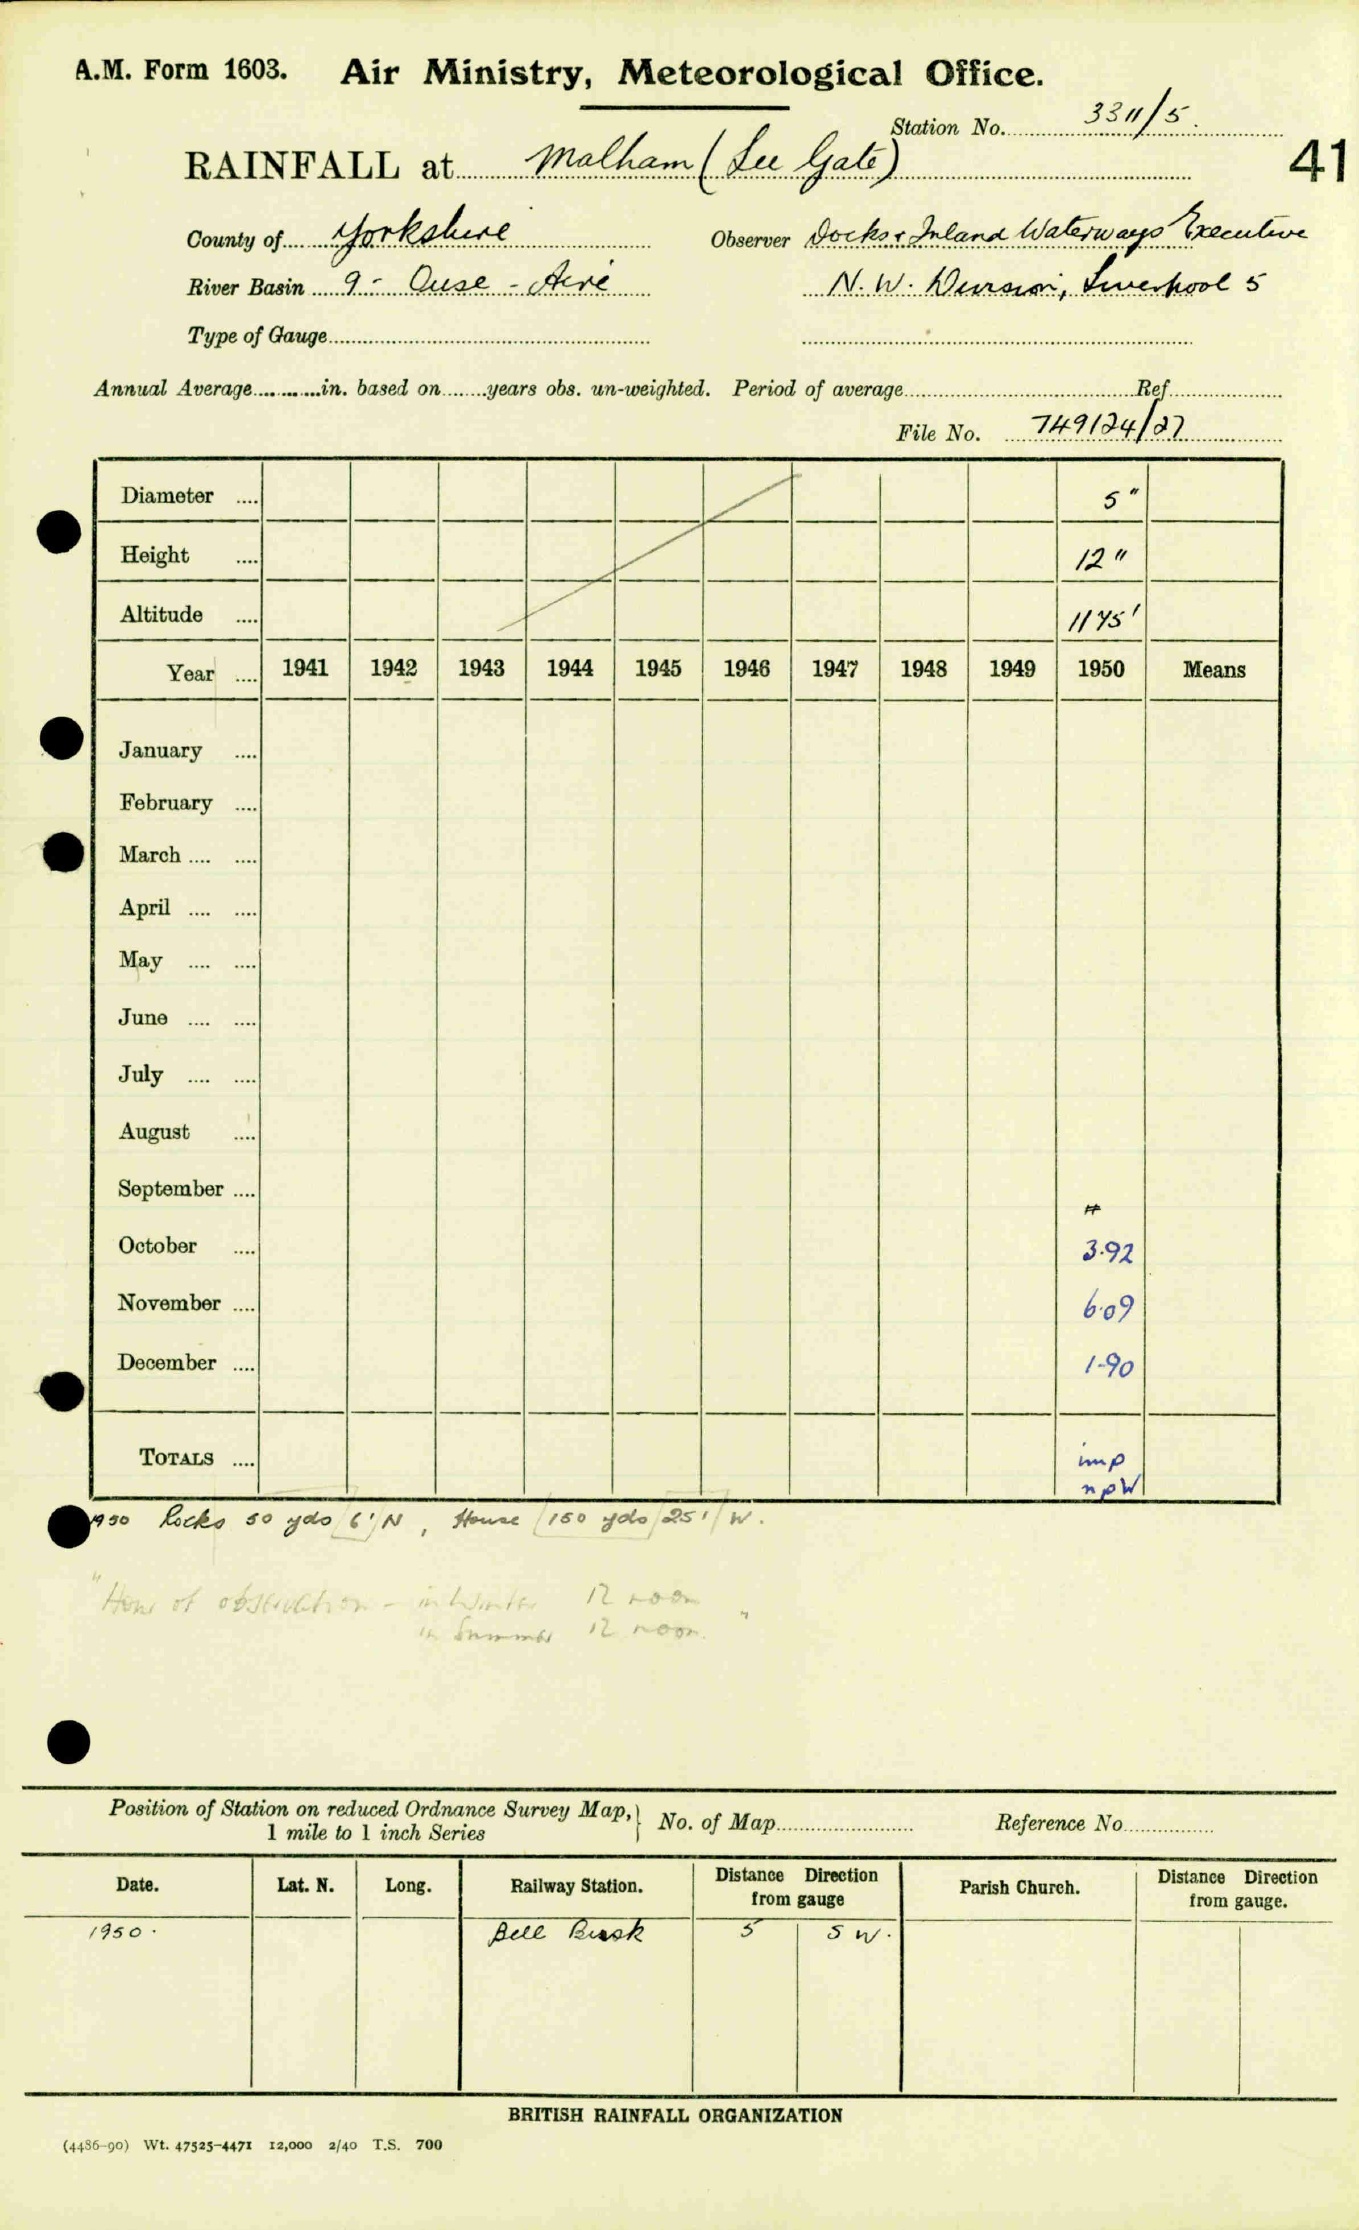 A.M. Form 1603. Air Ministry, Meteorological Office.
Station No. 3311/5.
41
RAINFALL at Malham (Lee Gate)
County of Yorkshire Observer Docks & Inland Waterways Executive
River Basin 9 - Ouse - Aire N.W. Division, Liverpool 5
Type of Gauge
Annual Average in. based on years obs. un-weighted. Period of average Ref
File No. 749124/27
Diameter 5"
Height 12"
Altitude 1175'
Year 1941 1942 1943 1944 1945 1946 1947 1948 1949 1950 Means
January
February
March
April
May
June
July
August
September
#
October 3.92
November 6.09
December 1.90
TOTALS imp
npW
1950 Rocks 50 yds 6' N, House 150 yds 25' W.
"Hour of observation - in Winter 12 noon
in Summer 12 noon. "
Position of Station on reduced Ordnance Survey Map, 1 mile to 1 inch Series } No. of Map Reference No
Date. Lat. N. Long. Railway Station. Distance Direction from gauge Parish Church. Distance Direction from gauge.
1950. Bell Busk 5 SW.
BRITISH RAINFALL ORGANIZATION
(4486-90) Wt. 47525-4471 12,000 2/40 T.S. 700